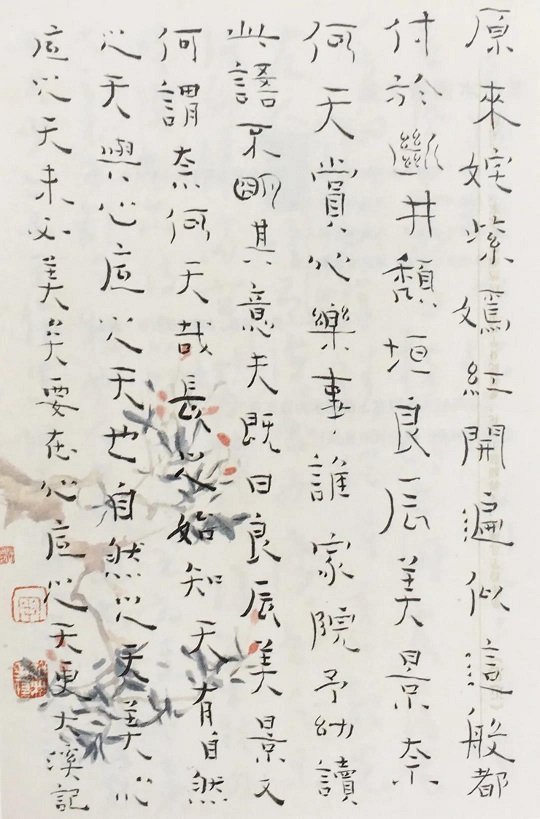 原來姹紫嫣紅開遍似這般都
付於斷井頹垣良辰美景奈
何天賞心樂事誰家院予幼讀
此語不明其意夫既曰良辰美景又
何謂奈何天哉長始知天有自然
之天與心应之天也自然之天美心
应之天未必美矣要在心应之天更大溪記